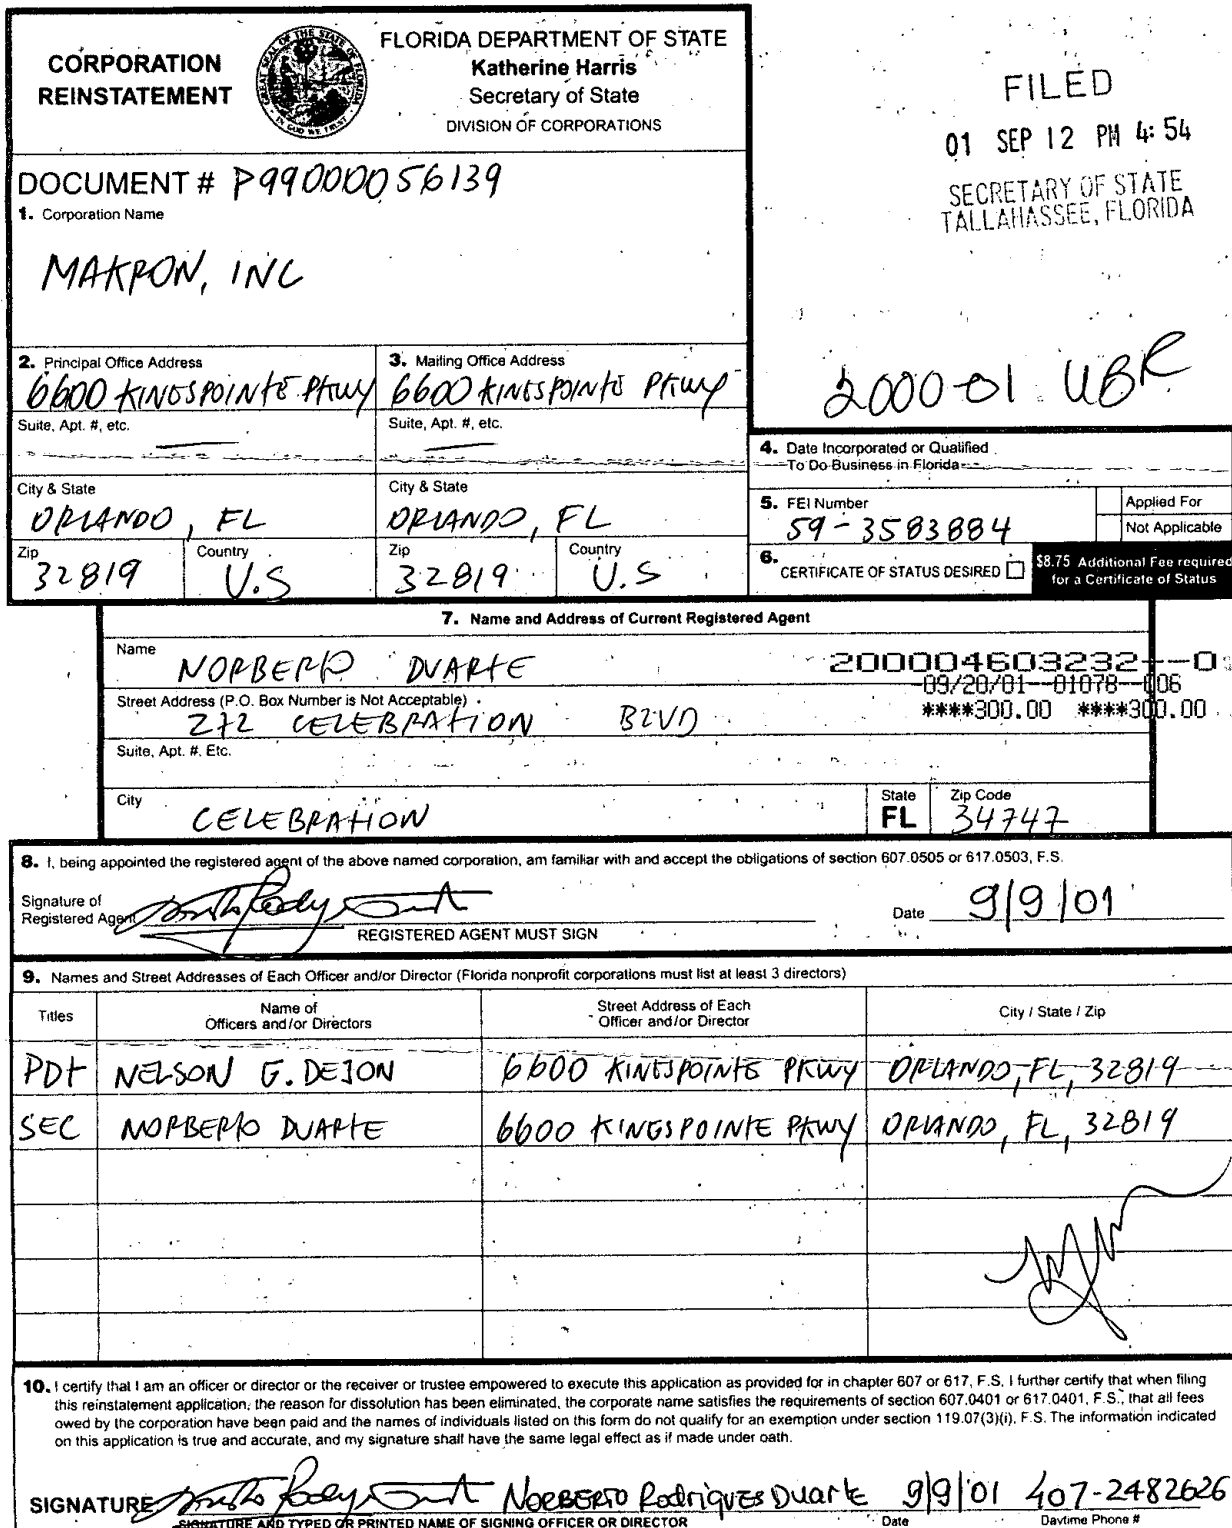 CORPORATION
REINSTATEMENT
FLORIDA DEPARTMENT OF STATE
Katherine Harris
Secretary of State
DIVISION OF CORPORATIONS
FILED
01 SEP 12 PM 4:54
SECRETARY OF STATE
TALLAHASSEE, FLORIDA
DOCUMENT # P99000056139
1. Corporation Name
MAKRON, INC
2000-01 UBR
2. Principal Office Address
6600 KINGSPOINTE PKWY
3. Mailing Office Address
6600 KINGSPOINTE PKWY
Suite, Apt. #, etc.
Suite, Apt. #, etc.
City & State
ORLANDO, FL
City & State
ORLANDO, FL
Zip
32819
Country
U.S
Zip
32819
Country
U.S
4. Date Incorporated or Qualified
To Do Business in Florida
5. FEI Number
59-3583884
Applied For
Not Applicable
6. CERTIFICATE OF STATUS DESIRED
$8.75 Additional Fee required
for a Certificate of Status
7. Name and Address of Current Registered Agent
Name
NORBERTO DUARTE
200004603232--0
-09/20/01--01078--006
****300.00 ****300.00
Street Address (P.O. Box Number is Not Acceptable)
272 CELEBRATION BLVD
Suite, Apt. #, Etc.
City
CELEBRATION
State
FL
Zip Code
34747
8. I, being appointed the registered agent of the above named corporation, am familiar with and accept the obligations of section 607.0505 or 617.0503, F.S.
Signature of
Registered Agent
Date 9/9/01
REGISTERED AGENT MUST SIGN
9. Names and Street Addresses of Each Officer and/or Director (Florida nonprofit corporations must list at least 3 directors)
Titles
Name of
Officers and/or Directors
Street Address of Each
Officer and/or Director
City / State / Zip
PDT NELSON G. DEJON 6600 KINGSPOINTE PKWY ORLANDO, FL, 32819
SEC NORBERTO DUARTE 6600 KINGSPOINTE PKWY ORLANDO, FL, 32819
10. I certify that I am an officer or director or the receiver or trustee empowered to execute this application as provided for in chapter 607 or 617, F.S. I further certify that when filing
this reinstatement application, the reason for dissolution has been eliminated, the corporate name satisfies the requirements of section 607.0401 or 617.0401, F.S., that all fees
owed by the corporation have been paid and the names of individuals listed on this form do not qualify for an exemption under section 119.07(3)(i), F.S. The information indicated
on this application is true and accurate, and my signature shall have the same legal effect as if made under oath.
SIGNATURE NORBERTO Rodrigues Duarte 9/9/01 407-2482626
SIGNATURE AND TYPED OR PRINTED NAME OF SIGNING OFFICER OR DIRECTOR Date Daytime Phone #